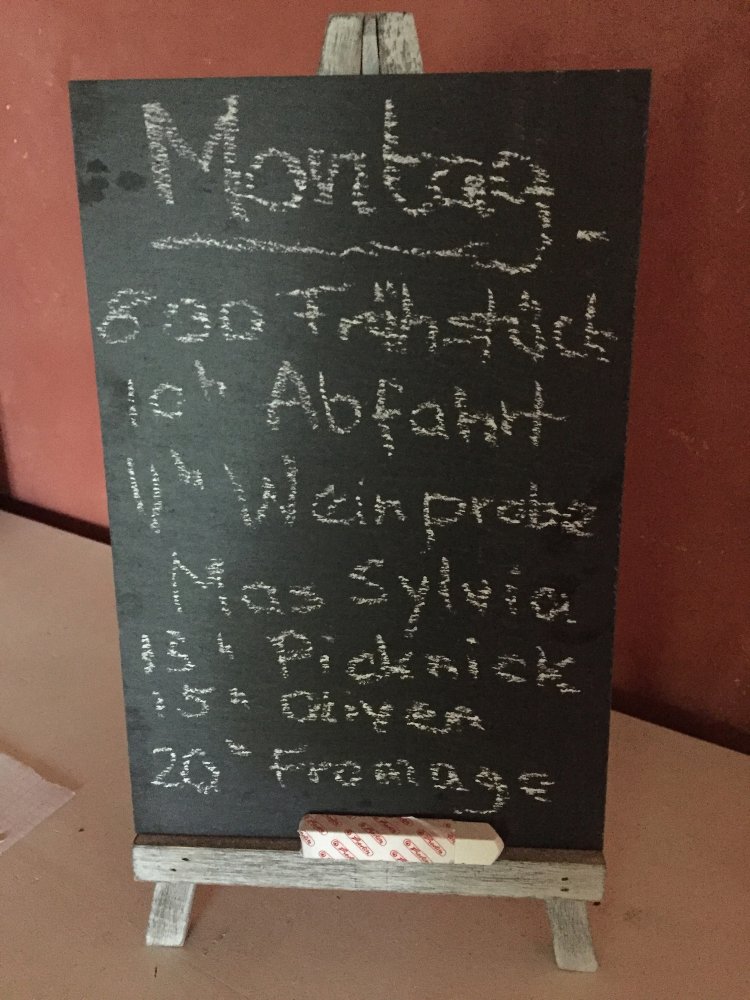 Montag
800 Frühstück
10" Abfahrt
11" Weinprobe
Mas Sylvie
13" Picknick
15" Olives
20" Fromage